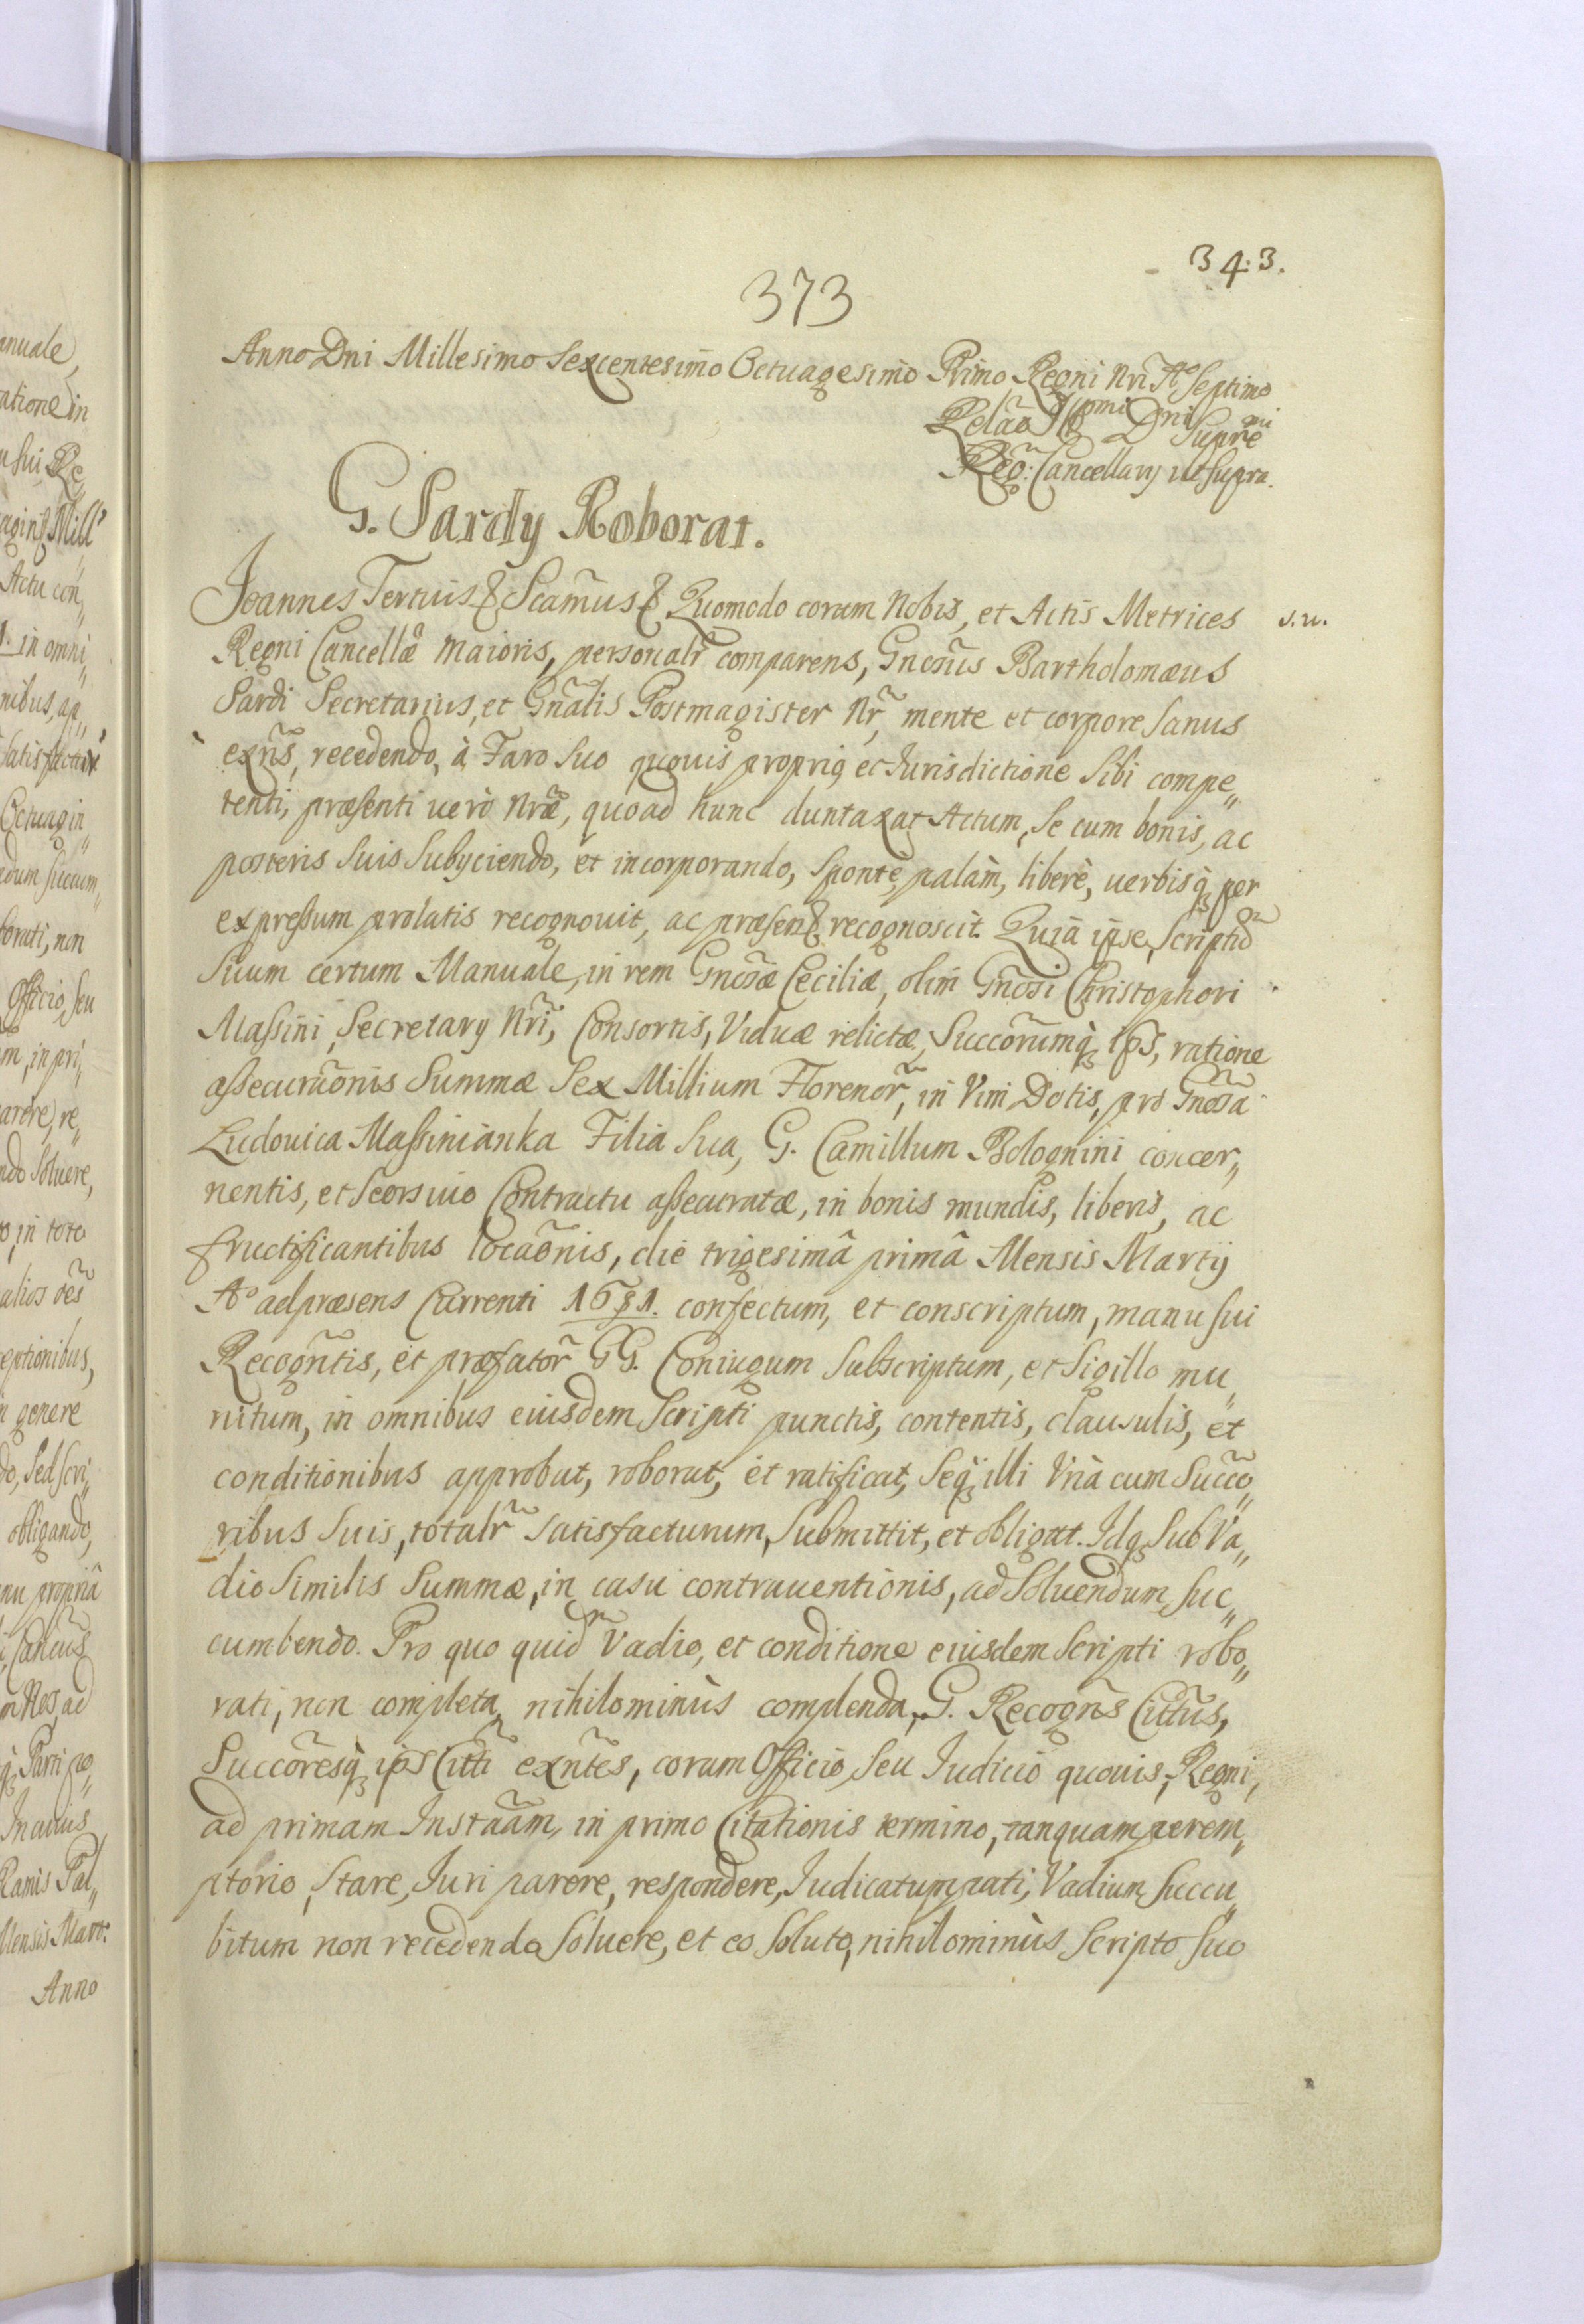 343.
373
Anno Dni Millesimo Sexcentesimo Octuagesimo Primo Regni Nri Aº Septimo
Relão Illmi Dni Supremi
Reg: Cancellarÿ ut supra.
G. Sardÿ Roborat.
Joannes Tertius & Scamus & Quomodo coram Nobis, et Actis Metrices s.n.
Regni Cancellæ maioris, personalr comparens, Gnosus Bartholomæus
Sardi Secretarius, et Gnalis Postmagister Nr, mente et corpore sanus
exns, recedendo, à Faro Suo quouis proprio, et Iurisdictione Sibi compe„
tenti, præsenti uerò Nræ, quoad hunc duntaxat Actum, Se cum bonis, ac
posteris Suis Subÿciendo, et incorporando, Sponte, palàm, liberè, uerbisq per
expressum prolatis recognouit, ac præsen& recognoscit. Quia ipse, Scriptũ
Suum certum Manuale, in rem Gnosæ Ceciliæ, olim Gnosi Christophori
Massini, Secretarÿ Nri, Consortis, Viduæ relictæ, Succorumq Ips, ratione
assecuraonis Summæ Sex Millium Florenor, in Vim Dotis, pro Gnosa
Ludouica Massinianka Filia Sua, G. Camillum Bolognini concer„
nentis, et Seorsiuo Contractu assecuratæ, in bonis mundis, liberis, ac
fructificantibus locaõnis, die trigesimâ primâ Mensis Martÿ
Aº ad præsens Currenti 1681. confectum, et conscriptum, manu Sui
Recogntis, et præfator GG. Coniugum Subscriptum, et Sigillo mu„
nitum, in omnibus eiusdem Scripti punctis, contentis, clausulis, et
conditionibus approbat, roborat, et ratificat, Seq illi Vnà cum Succo„
ribus Suis, totalr Satisfacturum, Submittit, et obligat. Idq Sub Va„
dio Similis Summæ, in casu contrauentionis, ad Soluendum Suc„
cumbendo. Pro quo quid Vadio, et conditione eiusdem Scripti robo„
rati, non completa, nihilominùs complenda, G. Recogns Cittus,
Succoresq ips Citti exntes, coram Officio, Seu Iudicio quouis, Regni,
ad primam Instaãm, in primo Citationis termino, tanquam perem„
ptorio, Stare, Iuri parere, respondere, Iudicatum pati, Vadium Succu„
bitum non recedendo Soluere, et eo Soluto, nihilominùs Scripto Suo